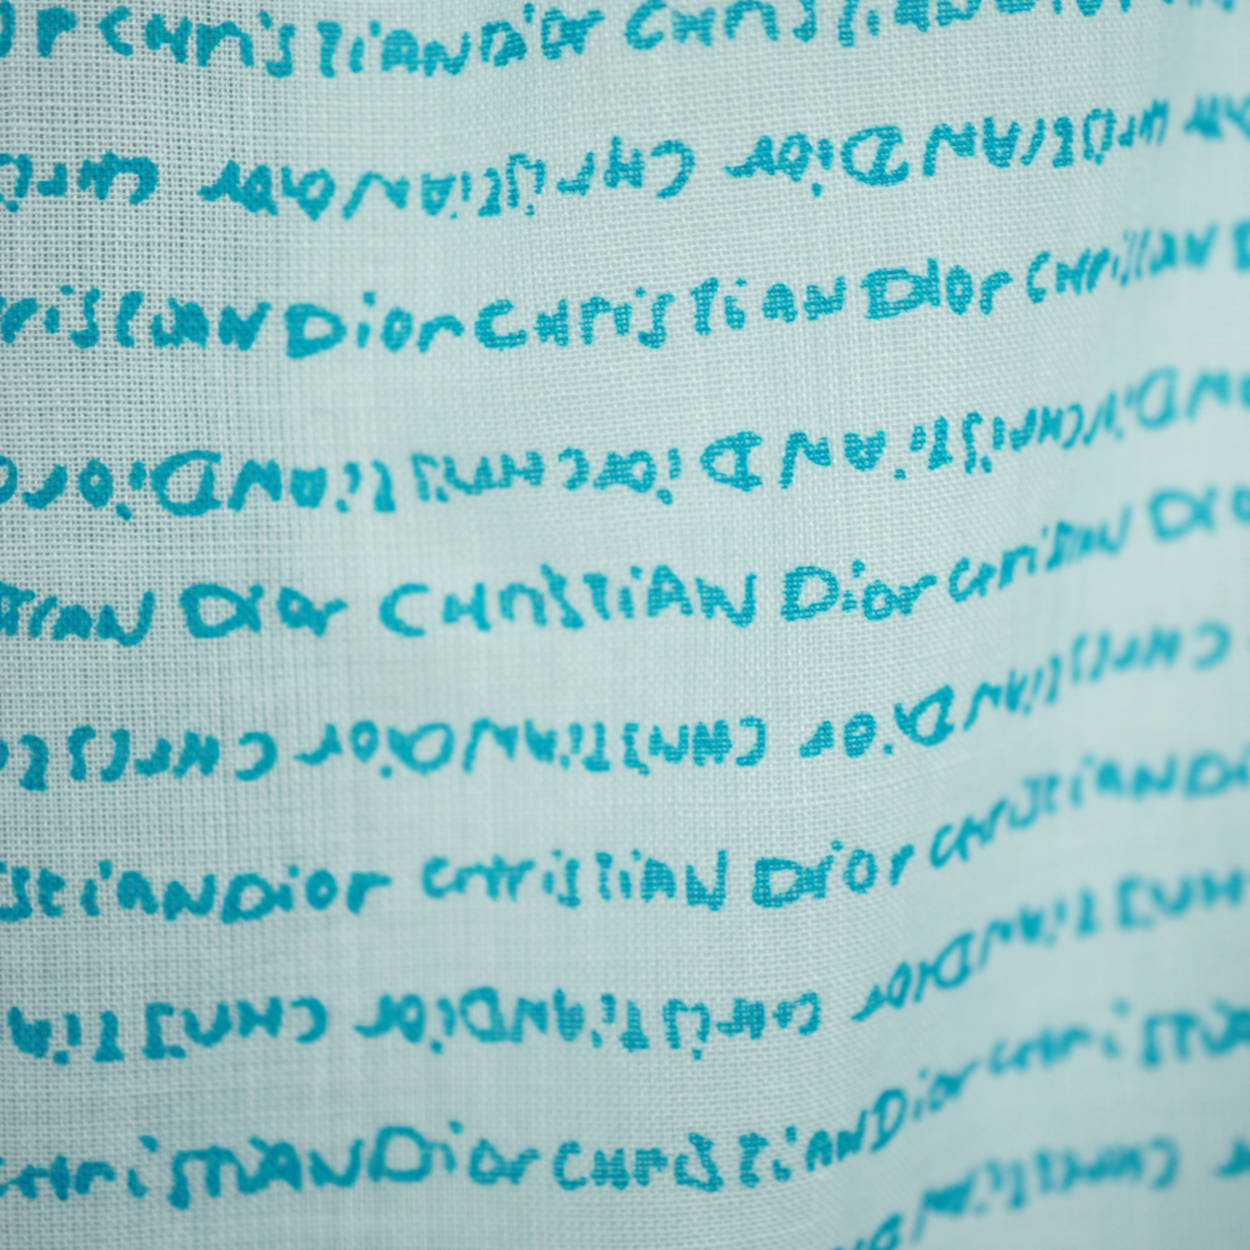 CHriSTiANDior CHriSTiAN
CHriSTiAN Dior CHriSTiANDior CHriS
riSTiAN Dior CHriSTiAN Dior CHriSTiAN
Dior CHriSTiAN Dior CHriSTiAN Dior C
STiAN Dior CHriSTiAN Dior CHriSTiAN Dio
CHriSTiAN Dior CHriSTiANDior CHriST
iSTiANDior CHriSTiAN Dior CHriSTiANDi
HriSTiANDior CHriSTiANDior CHriSTiA
CHriSTiANDior CHriSTiANDior CHriSTiA
CHriSTiAN